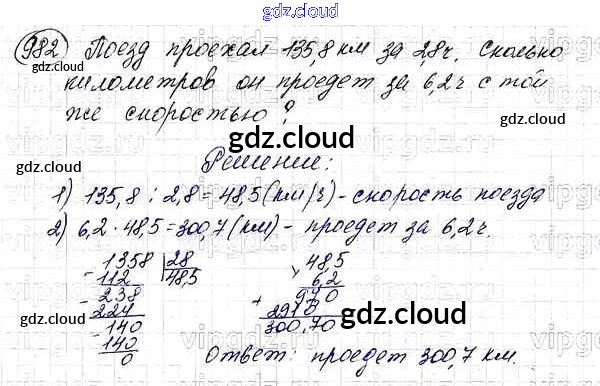 gdz.cloud
982 Поезд проехал 135,8 км за 2,8 ч. Сколько
километров он проедет за 6,2 ч с той
же скоростью?
gdz.cloud
Решение:
1) 135,8 : 2,8 = 48,5 (км/ч) - скорость поезда
2) 6,2 · 48,5 = 300,7 (км) - проедет за 6,2 ч.
1358 | 28
- 112 48,5
- 238
224
- 140
140
0
48,5
x 6,2
970
+ 2910
300,70
Ответ: проедет 300,7 км.
gdz.cloud